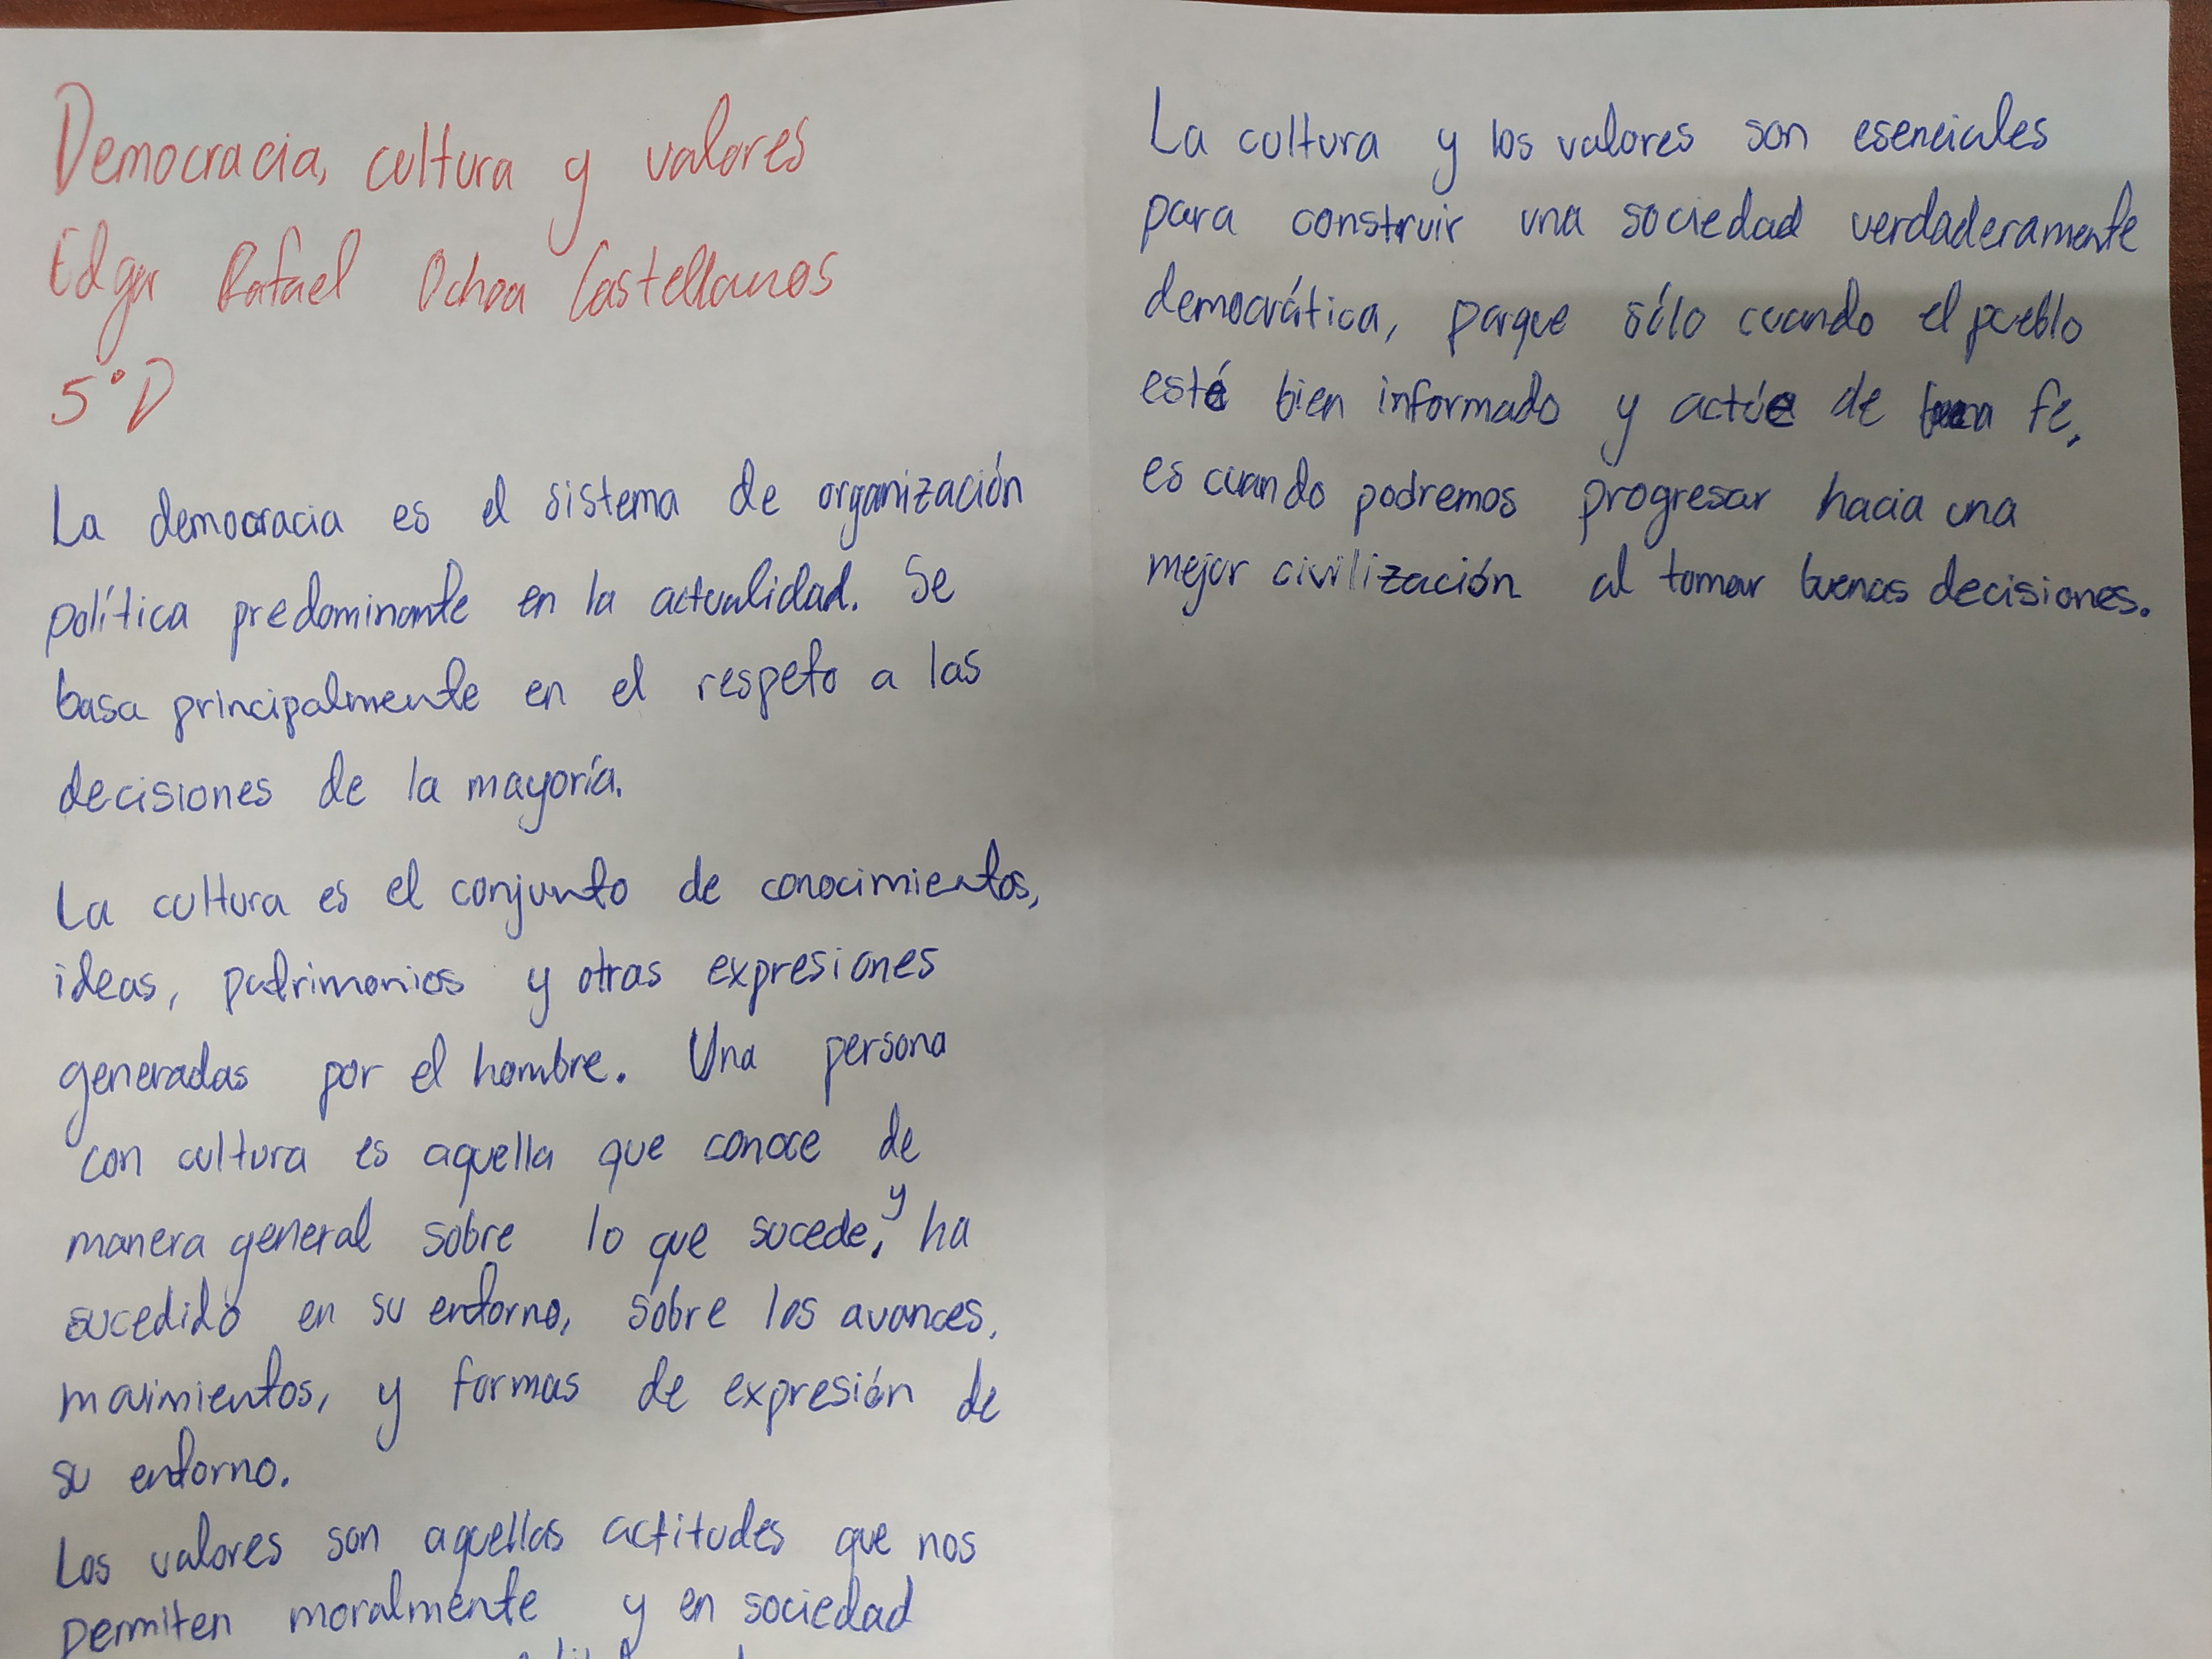 Democracia, cultura y valores
Edgar Rafael Ochoa Castellanos
5°D
La democracia es el sistema de organización
política predominante en la actualidad. Se
basa principalmente en el respeto a las
decisiones de la mayoría.
La cultura es el conjunto de conocimientos,
ideas, patrimonios y otras expresiones
generadas por el hombre. Una persona
con cultura es aquella que conoce de
manera general sobre lo que sucede, y ha
sucedido en su entorno, sobre los avances,
movimientos, y formas de expresión de
su entorno.
Los valores son aquellas actitudes que nos
permiten moralmente y en sociedad
La cultura y los valores son esenciales
para construir una sociedad verdaderamente
democrática, porque sólo cuando el pueblo
esté bien informado y actúe de buena fe,
es cuando podremos progresar hacia una
mejor civilización al tomar buenas decisiones.